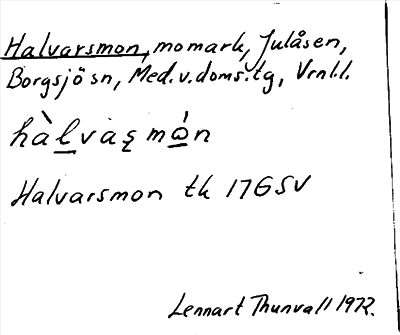 Halvarsmon, momark, Julåsen,
Borgsjö sn, Med. v. doms. tg, Vrnl.l.
hàl̲vaʂmò̲n
Halvarsmon tk 17G SV
Lennart Thunvall 1972.